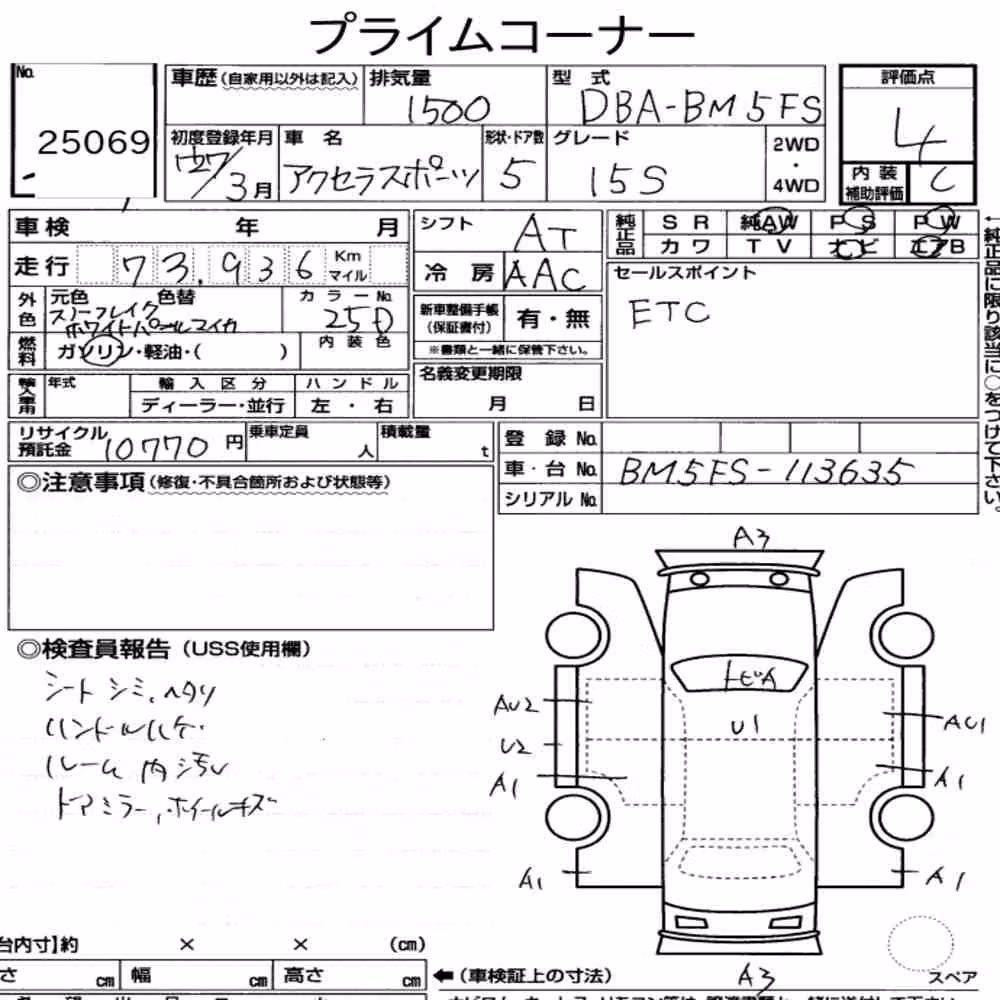 プライムコーナー
No.
25069
車歴(自家用以外は記入)
排気量
1500
型 式
DBA-BM5FS
評価点
4
初度登録年月
27/3月
車 名
アクセラスポーツ
形状・ドア数
5
グレード
15S
2WD
・
4WD
内装
補助評価
C
車検 年 月
シフト
AT
純正品
S R 純AW P S P W
カワ T V ナビ エアB
走行 73,936 Km マイル
冷 房
AAC
セールスポイント
ETC
外色
元色 色替
スノーフレイク
ホワイトパールマイカ
カラーNo.
25D
新車整備手帳
(保証書付)
有・無
※書類と一緒に保管下さい。
燃料
ガソリン・軽油・( )
内 装 色
輸入車用
年式
輸 入 区 分
ハ ン ド ル
ディーラー・並行
左 ・ 右
名義変更期限
月 日
リサイクル
預託金
10770円
乗車定員
人
積載量
t
登 録 No.
車・台 No.
BM5FS-113635
シリアル No.
←純正品に限り該当に○をつけて下さい。
◎注意事項(修復・不具合箇所および状態等)
◎検査員報告(USS使用欄)
シート シミ,ヘタリ
ハンドルハゲ・
ルーム 内 汚レ
ドアミラー,ホイールキズ
A3
トビA
U1
AU2
U2
A1
AU1
A1
A1
A1
A3
スペア
台内寸】約 × × (cm)
さ cm 幅 cm 高さ cm
←(車検証上の寸法)